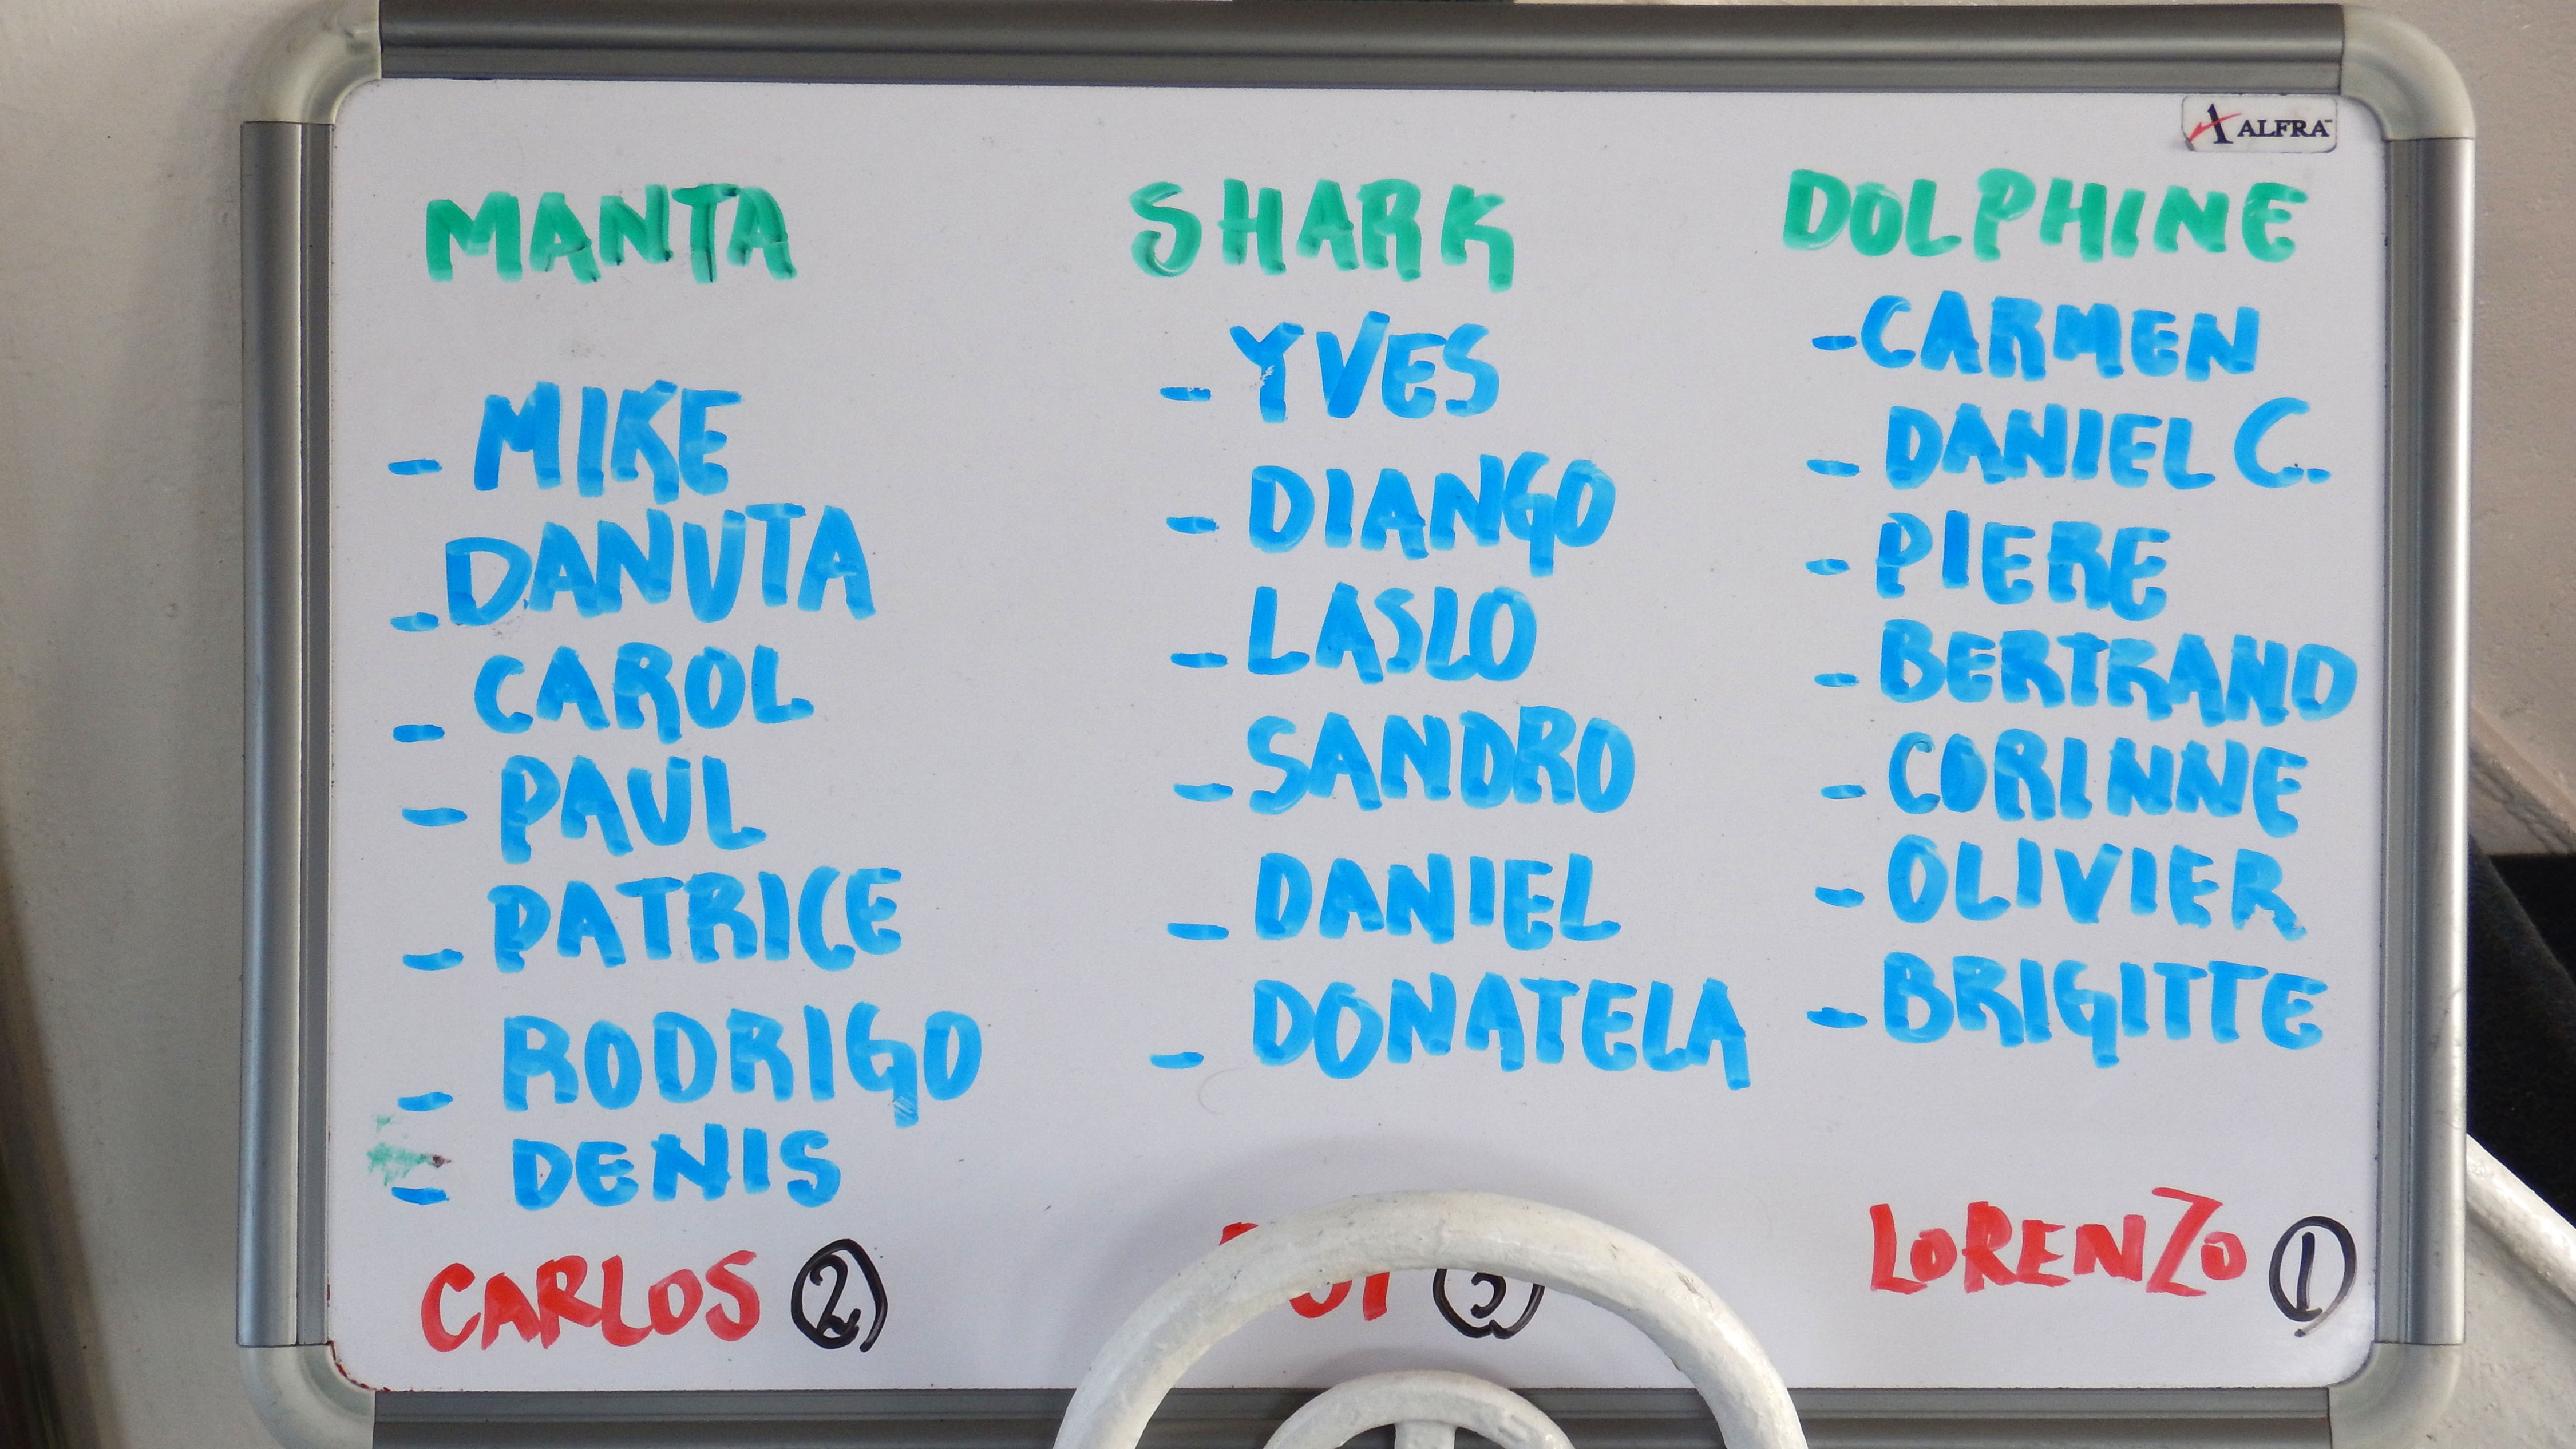 ALFRA
MANTA
- MIKE
- DANUTA
- CAROL
- PAUL
- PATRICE
- RODRIGO
- DENIS
CARLOS 2
SHARK
- YVES
- DIANGO
- LASLO
- SANDRO
- DANIEL
- DONATELA
3
DOLPHINE
- CARMEN
- DANIEL C.
- PIERE
- BERTRAND
- CORINNE
- OLIVIER
- BRIGITTE
LORENZO 1